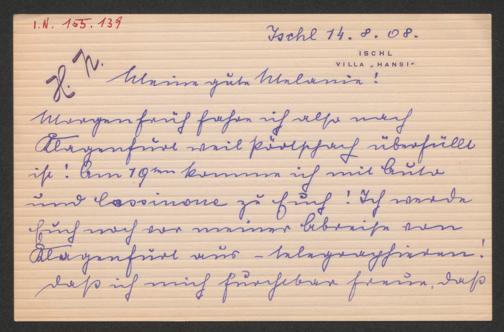 I.N. 165.139
Ischl 14.8.08.
ISCHL
VILLA „HANSI“
H. N.
Meine gute Melanie!
Morgen früh fahre ich also nach
Klagenfurt weil Pörtschach überfüllt
ist! Am 19ten komme ich mit Auto
und Cassinone zu Euch! Ich werde
Euch noch vor meiner Abreise von
Klagenfurt aus - telegraphieren!
Daß ich mich furchtbar freue, daß